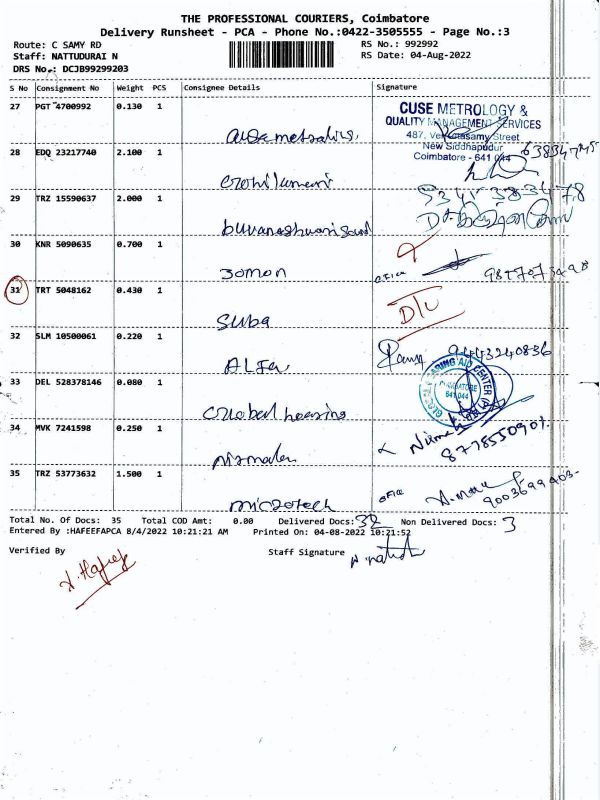 THE PROFESSIONAL COURIERS, Coimbatore
Delivery Runsheet - PCA - Phone No.:0422-3505555 - Page No.:3
Route: C SAMY RD
RS No.: 992992
Staff: NATTUDURAI N
RS Date: 04-Aug-2022
DRS No.: DCJB99299203
S No Consignment No Weight PCS Consignee Details Signature
27 PGT 4700992 0.130 1
CUSE METROLOGY &
QUALITY MANAGEMENT SERVICES
487, Venkatasamy Street
New Siddhapudur
Coimbatore - 641 044
28 EDQ 23217740 2.100 1
29 TRZ 15590637 2.000 1
9345383478
30 KNR 5090635 0.700 1
Jomon
office
31 TRT 5048162 0.430 1
D/L
Suba
32 SLM 10500061 0.220 1
9443240836
ALFA
33 DEL 528378146 0.080 1
HEARING AID CENTER
COIMBATORE
641 044
34 MVK 7241598 0.250 1
Nirmala
8778550901
35 TRZ 53773632 1.500 1
office
microtech
Total No. Of Docs: 35 Total COD Amt: 0.00 Delivered Docs: 32 Non Delivered Docs: 3
Entered By :HAFEEFAPCA 8/4/2022 10:21:21 AM Printed On: 04-08-2022 10:21:52
Verified By
Staff Signature